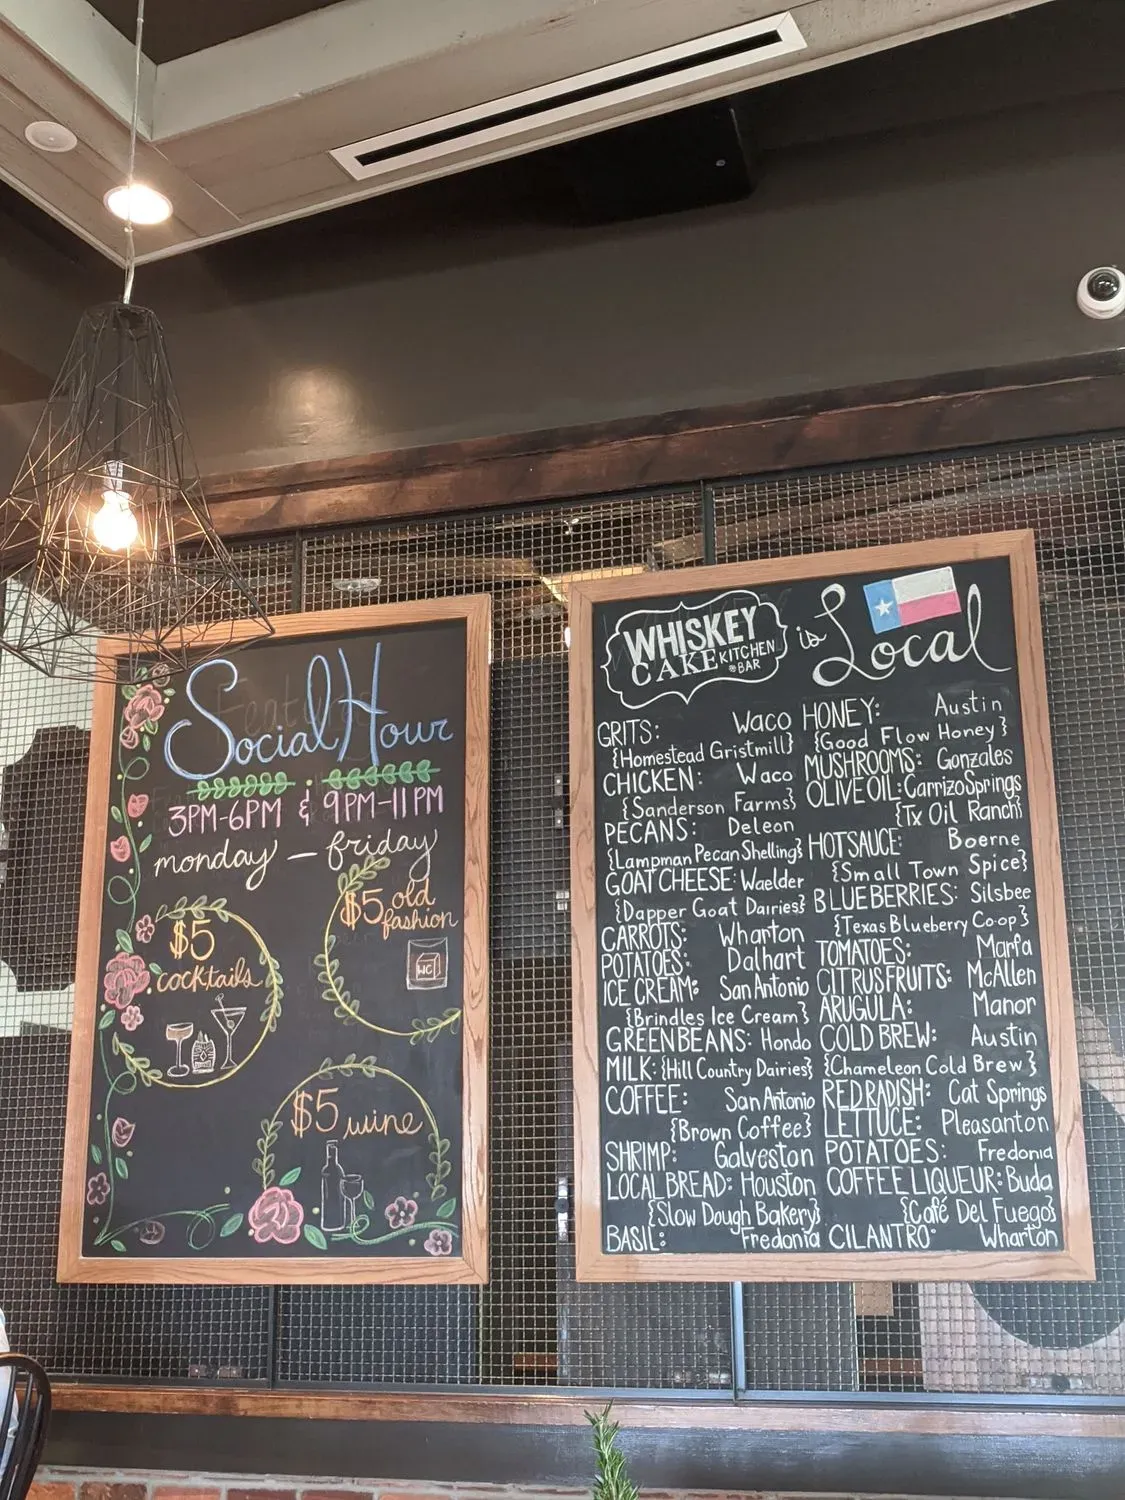 Social Hour
3PM-6PM & 9PM-11PM
monday - friday
$5 old
fashion
WC
$5
cocktails
$5 wine
WHISKEY
CAKE KITCHEN
& BAR
is Local
GRITS: Waco
{Homestead Gristmill}
CHICKEN: Waco
{Sanderson Farms}
PECANS: Deleon
{Lampman Pecan Shelling}
GOAT CHEESE: Waelder
{Dapper Goat Dairies}
CARROTS: Wharton
POTATOES: Dalhart
ICE CREAM: San Antonio
{Brindles Ice Cream}
GREEN BEANS: Hondo
MILK: {Hill Country Dairies}
COFFEE: San Antonio
{Brown Coffee}
SHRIMP: Galveston
LOCAL BREAD: Houston
{Slow Dough Bakery}
BASIL: Fredonia
HONEY: Austin
{Good Flow Honey}
MUSHROOMS: Gonzales
OLIVE OIL: Carrizo Springs
{Tx Oil Ranch}
HOT SAUCE: Boerne
{Small Town Spice}
BLUEBERRIES: Silsbee
{Texas Blueberry Co-op}
TOMATOES: Marfa
CITRUS FRUITS: McAllen
ARUGULA: Manor
COLD BREW: Austin
{Chameleon Cold Brew}
RED RADISH: Cat Springs
LETTUCE: Pleasanton
POTATOES: Fredonia
COFFEE LIQUEUR: Buda
{Café Del Fuego}
CILANTRO: Wharton